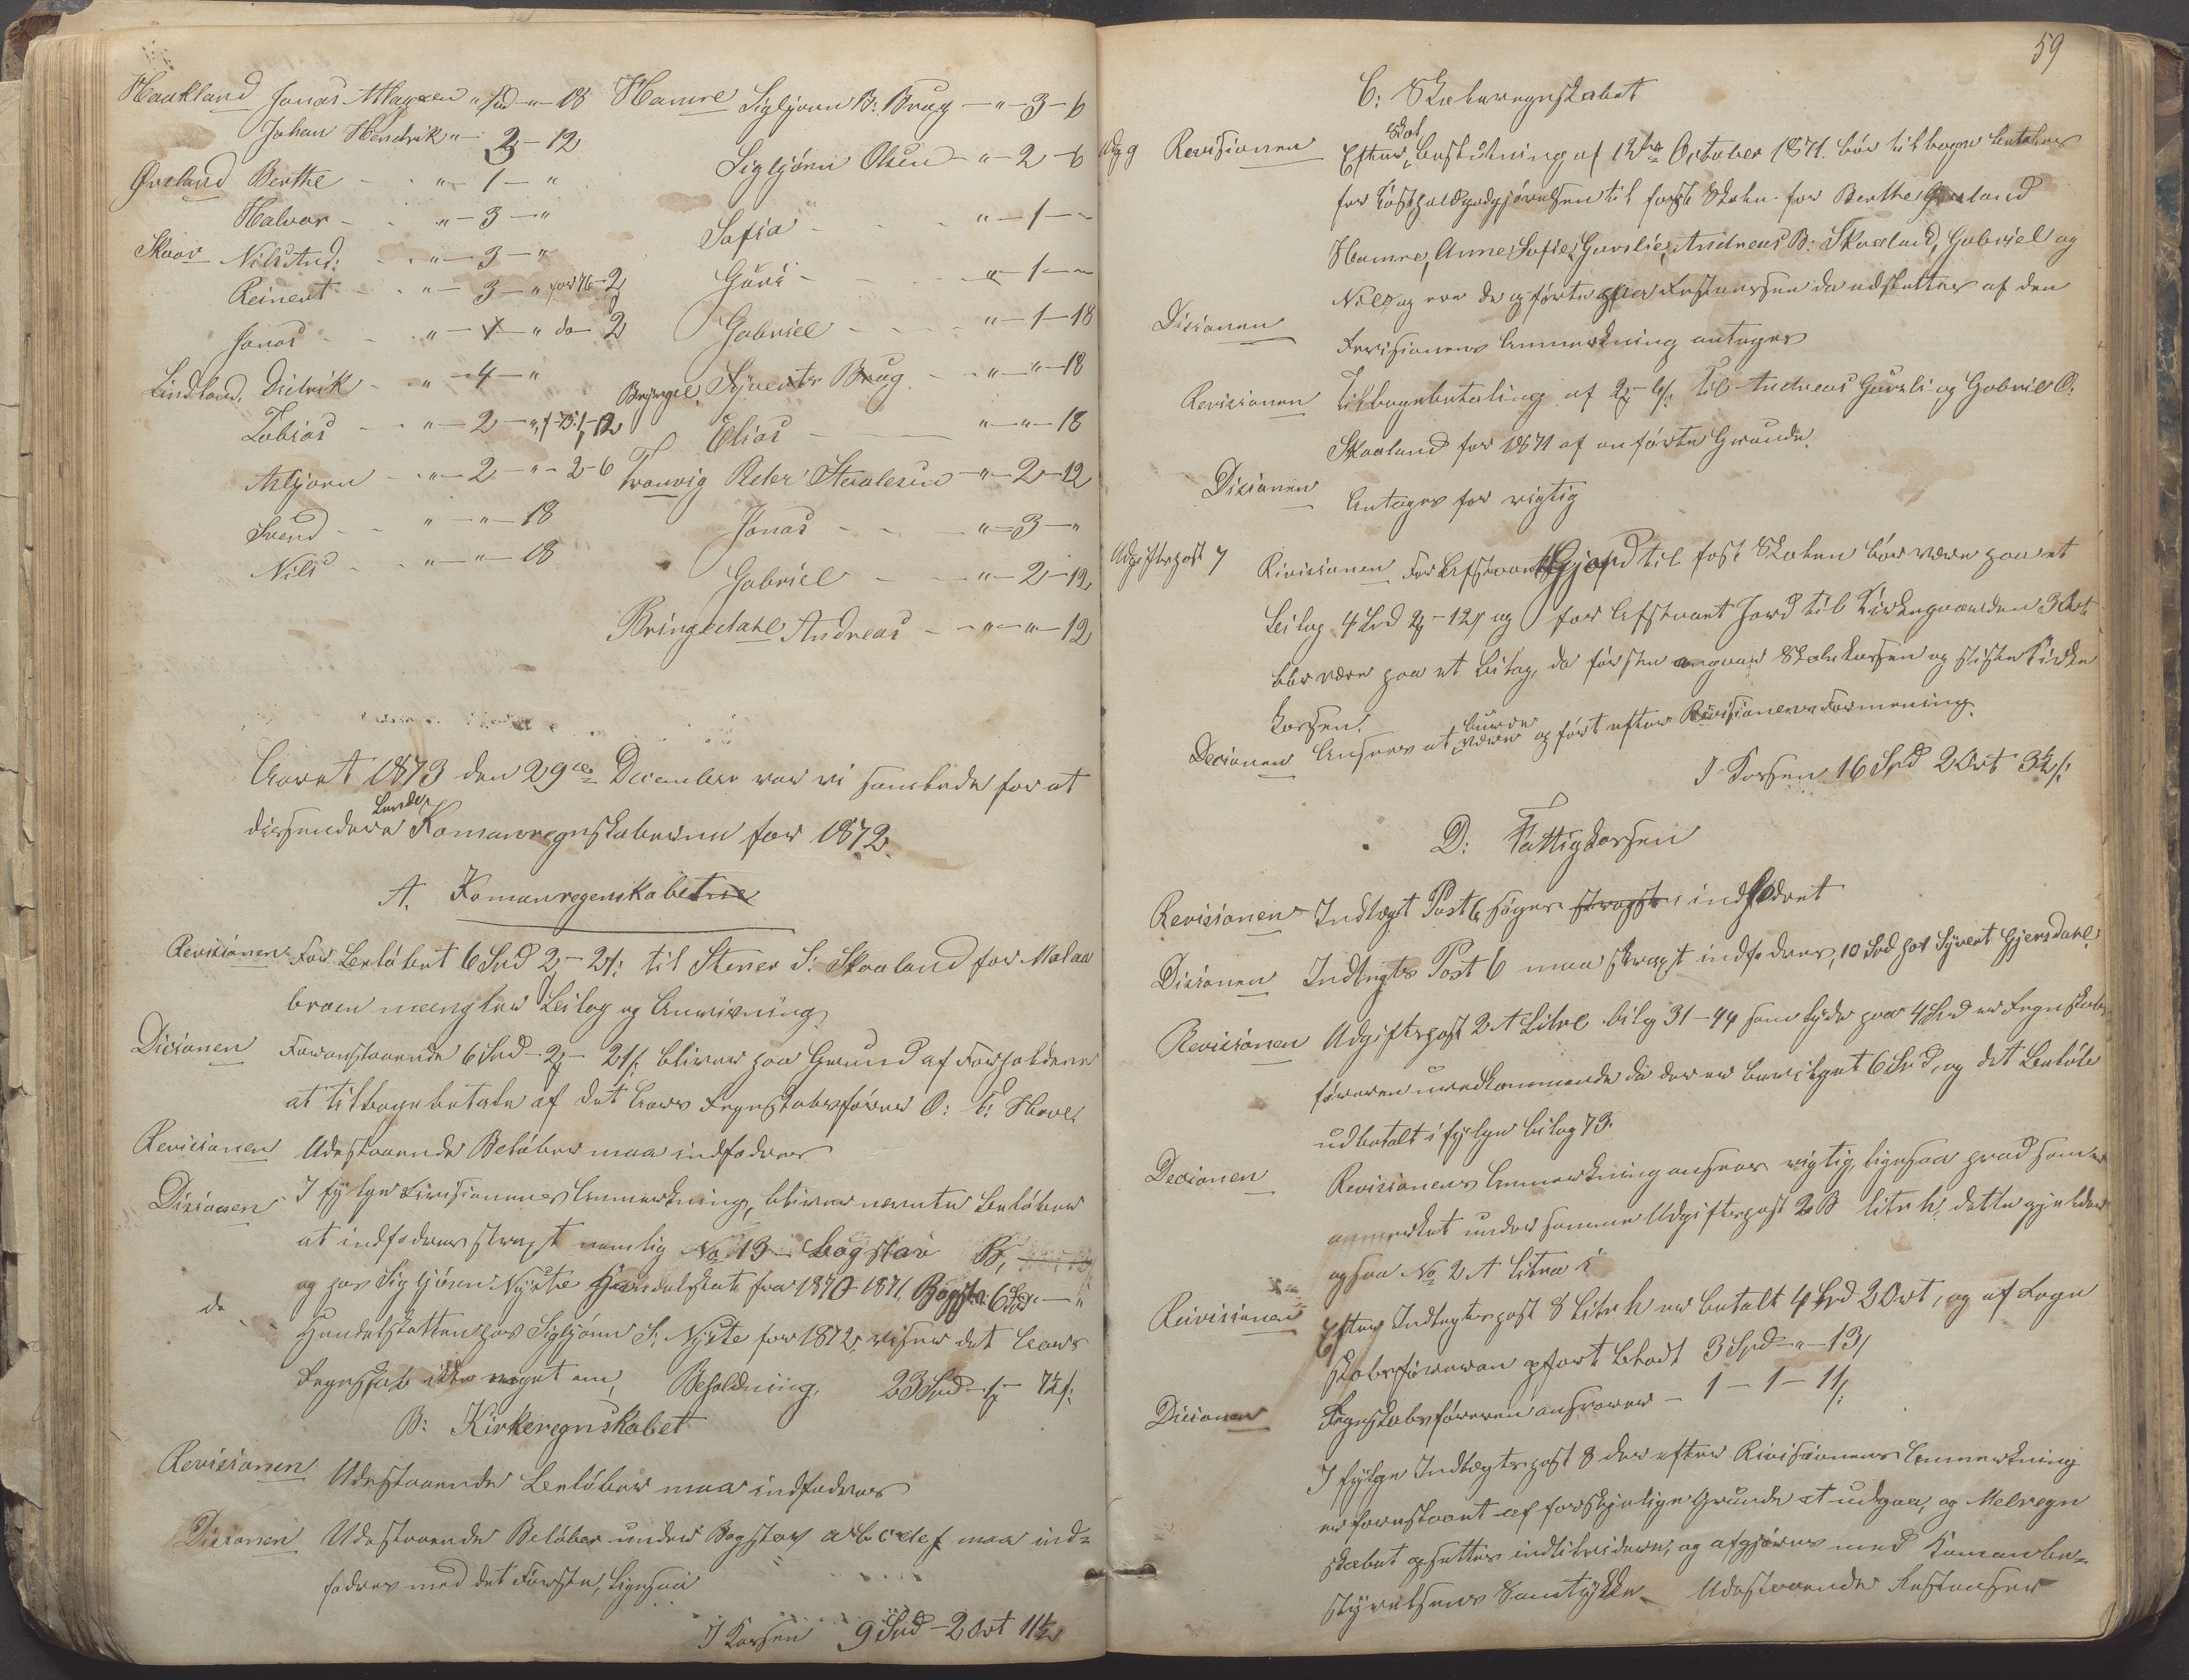 Haukland Jonas Atlagsen " Spd " 18
Johan Hendrik " 2 - 12
Øreland Berthe - " - 1 - "
Halvor - " - 3 - "
Skaar Nils And: - " - 3 - "
Reinert - " - 3 - " for 76 - 2
Jonas - " - 1 - " do 2
Lindland, Didrik - " - 4 - "
Tobias - " - 2 - "
Asbjørn - " - 2 - " - 2 - 6
Svend - " - " - 18
Nils - " - " - 18
Hamre Sigbjørn B: Brug - " - 3 - 6
Sigbjørn Olsen - " - 2 - 6
Sofia - " - 1 - "
Guri - " - 1 - "
Gabriel - " - 1 - 18
Sÿverts Brug - " - " - 18
Elias - " - " - 18
Tronvig Peder Staalesen - " - 2 - 12
Jonas - " - 3 - "
Gabriel - " - 2 - 12
Bringedahl Andreas - " - " - 12
Aaret 1873 den 29de December var vi samlede for at
disendere Lunde Komunregnskaberne for 1872.
A. Komunregenskabetne
Revisionen For Beløbet 6 Spd 2 - 21 s: til Stener S: Skaaland for Malaa
broen mangler Beilag og Anvisning.
Dicionen Foranstaaende 6 Spd - 2 - 21 s: bliver paa Grund af Forholdene
at tilbagebetale af det Aars Regnskabsfører O: T: Hove.
Revicionen Udestaaende Beløber maa indfodres
Dicionen I følge Rivisionens Anmerkning, bliver nævnte Beløber
at indfodres strax nemlig No 13 Bogstav B,
og hos Sigbjørn Nyste Handelskat fra 1870 - 1871, Bogsta: 6 Spd " - "
do Handelskatten hos Sigbjørn S. Nyste for 1872, viser det Aars
Regnskab ikke noget om, Beholdning, 23 Spd - 1 - 7½ s:
B: Kirkeregnskabet
Revisionen Udestaaende Beeløber maa indfodres
Dicionen Udestaaende Beløber under Bogstav a b c d e f maa ind=
fodres med det Første, ligesaa
I Kassen 9 Spd - 2 Ort 11½
59
C: Skoleregnskabet
Udg 9 Revisionen Efter Skol beslutning af 12te October 1871 bør tilbage betales
for Kostholdgodgjørelsen til faste Skoler for Berthe Øreland
Hamre, Anne Sofie Gursli, Andreas B: Skaaland, Gabriel og
Nils og ere de opførte som Restancer da udskattes af den
Dicionen Revisionens Anmerkning antages
Revisionen Tilbagebetaling af 2 - 6 s: til Andreas Gursli og Gabriel O.
Skaaland for 1871 af anførte Grunde.
Dicionen Antages for rigtig
Udgiftspost 7 Rivisionen For Afstaaet Jord til fast Skolen bør være paa et
Beilag 4 Spd 2 - 12 s og for Afstaaet Jord til Kirkegaarden 3 Ort
bør være paa et Beilag, da første angaar Skolekassen og sidste Kirke
kassen.
Decionen Ansees at burde være opført efter Rivisionens Formening.
I Kassen 16 Spd 2 Ort 3½ s:
D: Fattigkassen
Revisionen Indtægt Post 6 søges strax indfodret
Dicionen Indtægts Post 6 maa strax indfodres, 10 Spd hos Sÿvert Gjersdahl.
Revisionen Udgiftspost 2 A Litre bilg 31 - 44 som lyder paa 4 Spd er Regnskabs
føreren uvedkommende da der er bevilget 6 Spd, og det Beeløb
udbetalt i følge bilag 73.
Decionen Revisionens Anmerkning ansees rigtig, ligesaa hvad som er
anmerket under samme Udgiftspost 2 B litr h, dette gjelder
ogsaa No 2 A Litra i
Rivisionen Efter Indtægtspost 8 Litr h er betalt 4 Spd 2 Ort, og af Regn
skabsføreren opført blodt 3 Spd - " - 13 s
Dicionen Regnskabsføreren ansvarer - 1 - 1 - 11 s:
I følge Indtægtspost 8 der efter Rivisionens Anmerkning
er foranstaaet af forskjelige Grunde at udgaa, og Melregn
skabet opsettes indtil videre, og afgjøres med Komunbe=
styrelsens Samtykke. Udestaaende Restanser